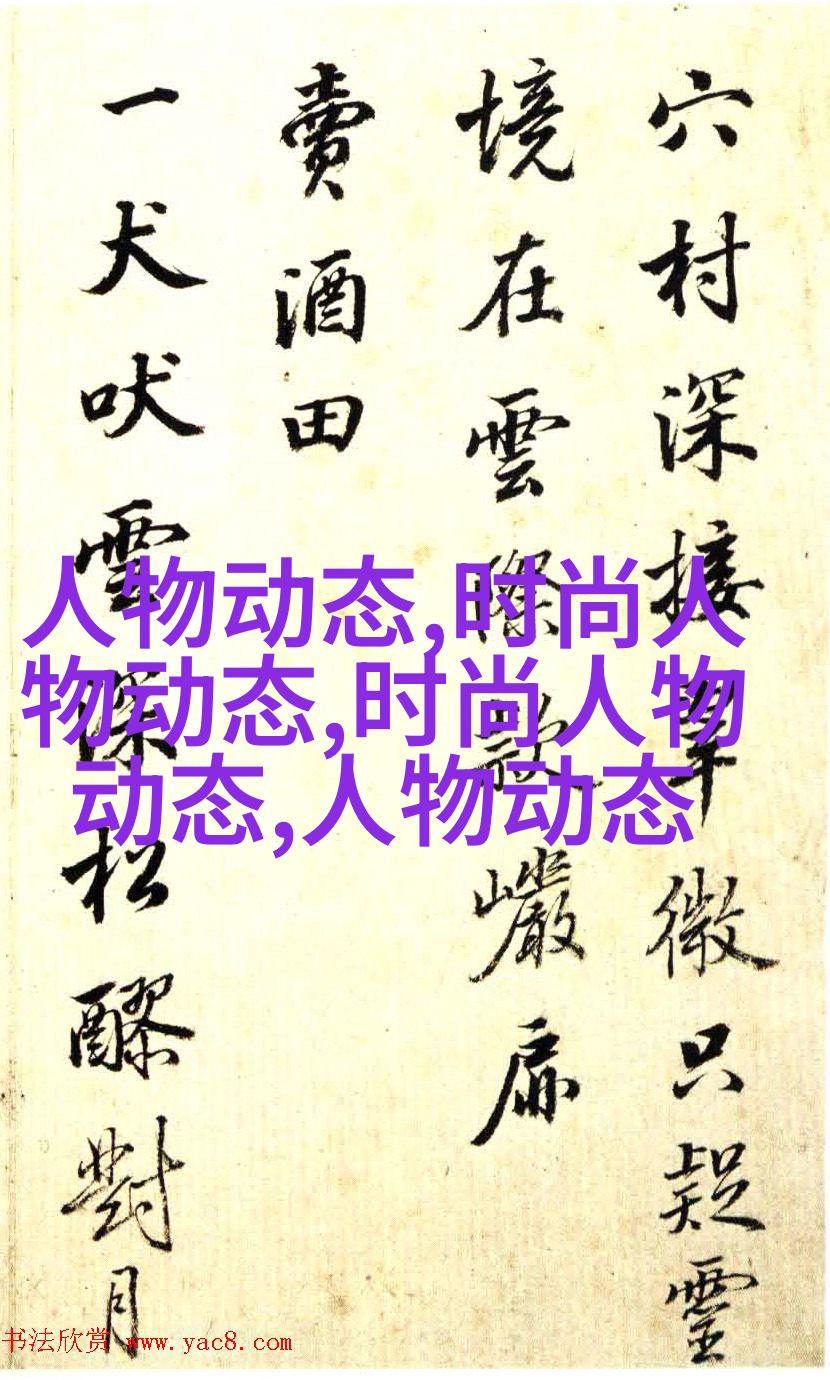 穴村深接翠微只疑靈
境在雲際款巖扉
賣酒田
一犬吠雲深松醪對月
人物动态,时尚人
物动态,时尚人物
动态,人物动态
书法欣赏 www.yac8.com